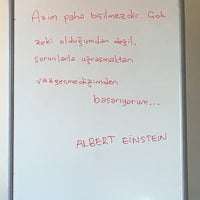 Azim paha biçilmezdir: Çok
zeki olduğumdan değil,
sorunlarla uğraşmaktan
vazgeçmediğimden
başarıyorum...
ALBERT EINSTEIN